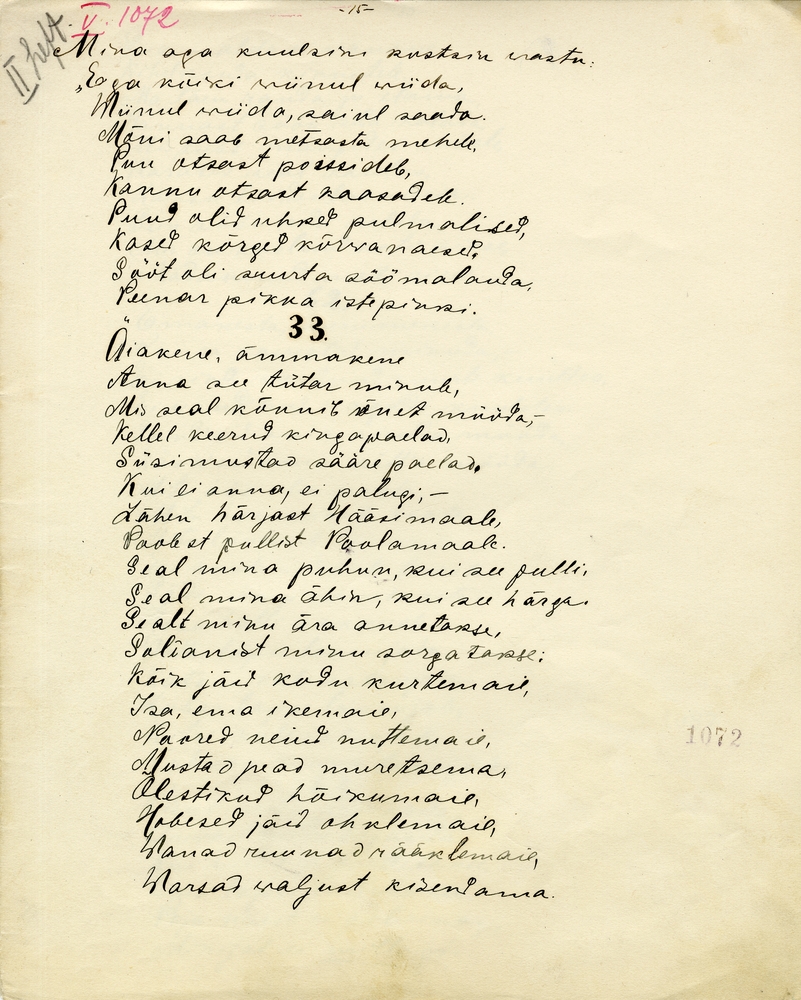 -15-
V. 1072
II
Mina aga kuulsin kostsin wastu:
"Ega kõiki wiinul wiida,
Wiinul wiida, saiul saada.
Mõni saab metsasta mehele,
Puu otsast poissideb,
Kannu otsast kaasadele.
Puud olid uhked pulmalised,
Kased kõrged kõrwanaesed,
Sööt oli suurta söömalauda,
Peenar pikka istepinki.
"
33.
Äiakene, ämmakene
Anna see tütar minule,
Mis seal kõnnib õuet mööda,-
Kellel keerud kingapaelad,
Süsimustad sääre paelad.
Kui ei anna, ei palugi,-
Lähen härjast Hääsimaale,
Poolest pullist Poolamaale.
Seal mina puhun, kui see pulli,
Seal mina ähin, kui see härga.
Sealt minu ära annetakse,
Soldanist minu sorgatakse:
Kõik jäid kodu kurtemaie,
Isa, ema ikemaie,
Noored neiud nuttemaie,
Mustad pead muretsema,
Õlestikud hõikumaie,
Hobesed jäid ohklemaie,
Wanad ruunad rääklemaie,
Warsad waljust kisendama.
1072